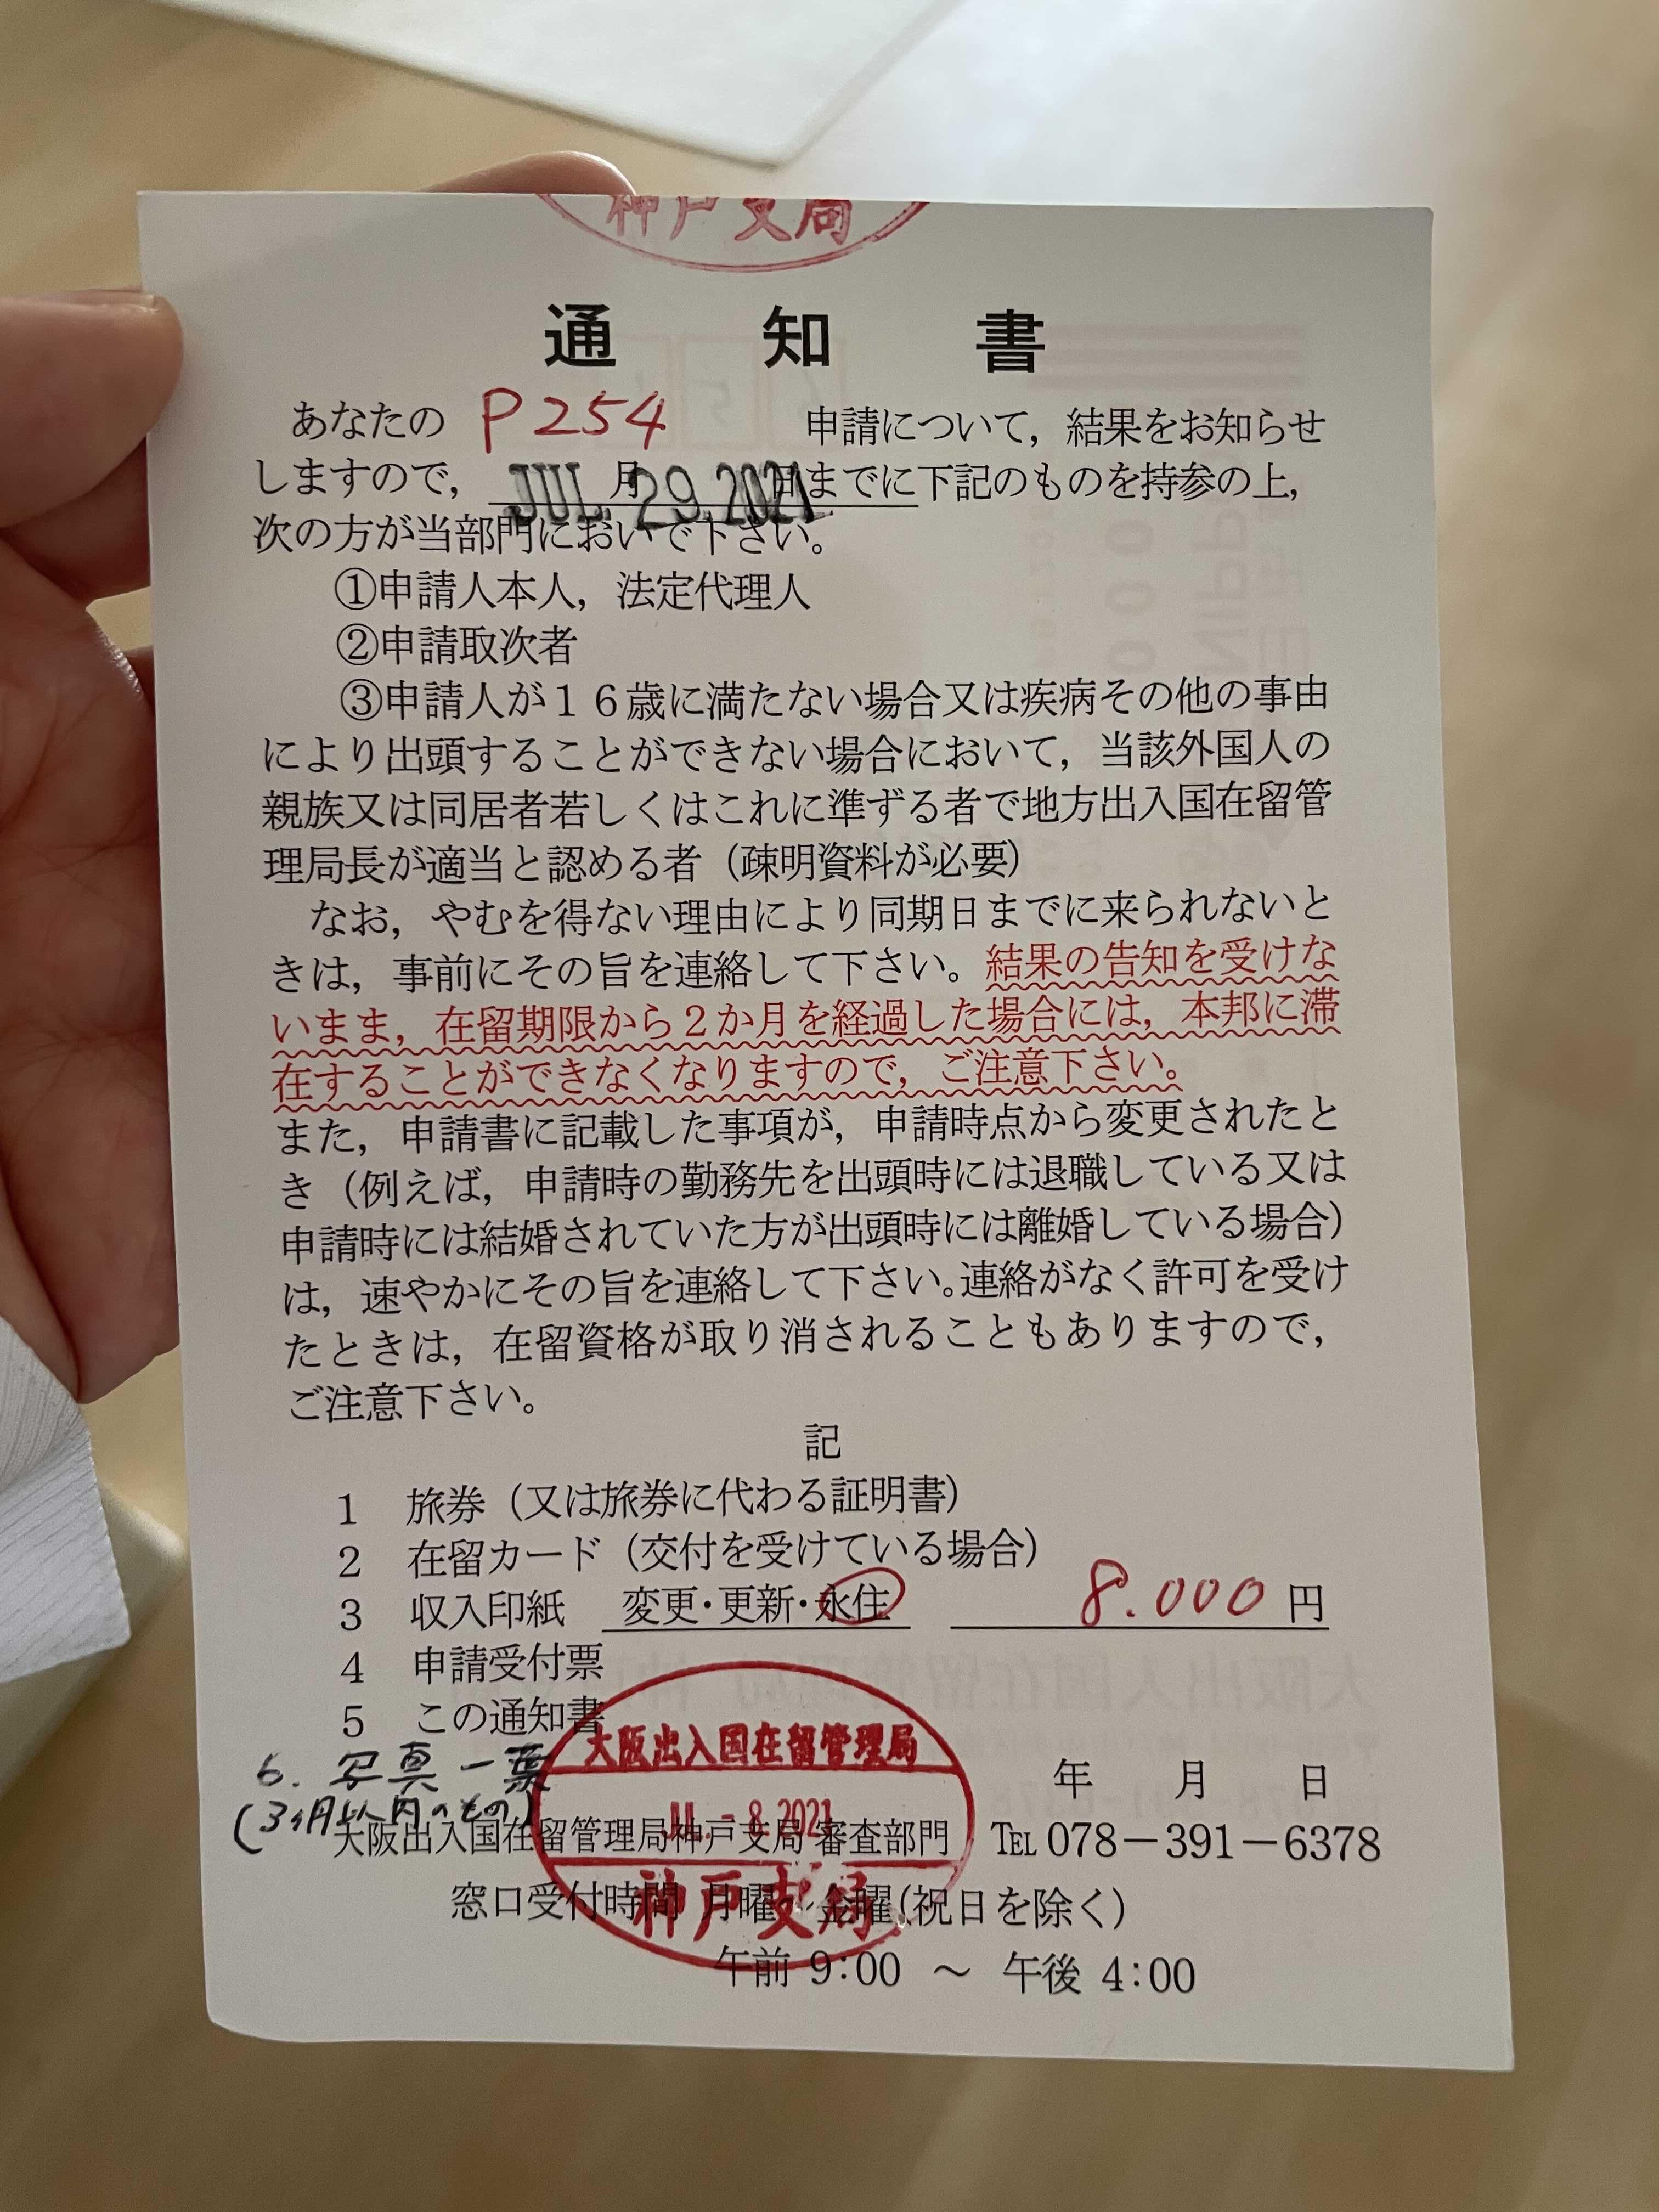 神戸支局
通知書
あなたの P254 申請について，結果をお知らせ
しますので， 月 日までに下記のものを持参の上，
JUL. 29. 2021
次の方が当部門においで下さい。
①申請人本人，法定代理人
②申請取次者
③申請人が１６歳に満たない場合又は疾病その他の事由
により出頭することができない場合において，当該外国人の
親族又は同居者若しくはこれに準ずる者で地方出入国在留管
理局長が適当と認める者（疎明資料が必要）
なお，やむを得ない理由により同期日までに来られないと
きは，事前にその旨を連絡して下さい。結果の告知を受けな
いまま，在留期限から２か月を経過した場合には，本邦に滞
在することができなくなりますので，ご注意下さい。
また，申請書に記載した事項が，申請時点から変更されたと
き（例えば，申請時の勤務先を出頭時には退職している又は
申請時には結婚されていた方が出頭時には離婚している場合）
は，速やかにその旨を連絡して下さい。連絡がなく許可を受け
たときは，在留資格が取り消されることもありますので，
ご注意下さい。
記
1 旅券（又は旅券に代わる証明書）
2 在留カード（交付を受けている場合）
3 収入印紙 変更・更新・永住 8.000 円
4 申請受付票
5 この通知書
6. 写真一葉
(3ヶ月以内のもの)
大阪出入国在留管理局
JUL. -8. 2021
神戸支局
年 月 日
大阪出入国在留管理局神戸支局 審査部門 TEL 078－391－6378
窓口受付時間 月曜～金曜（祝日を除く）
午前 9：00 ～ 午後 4：00